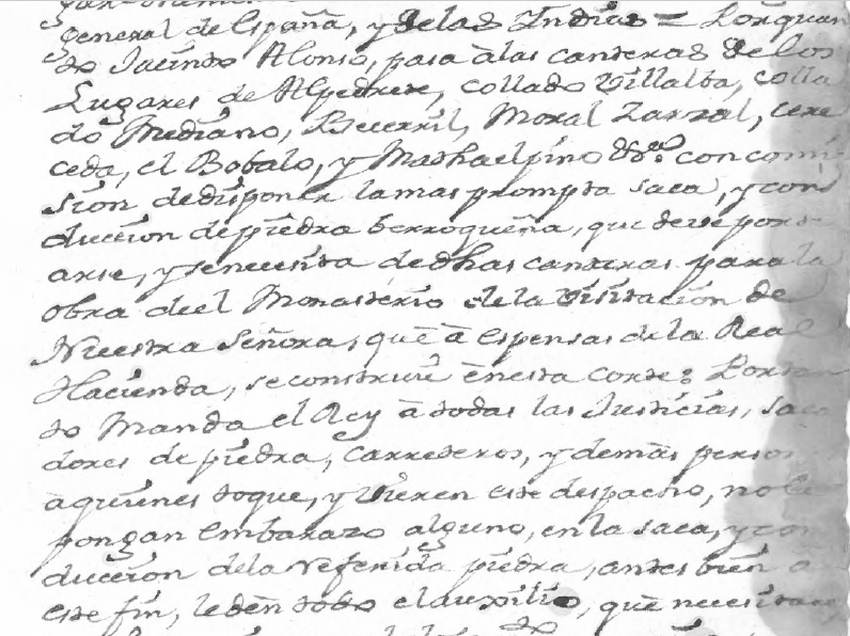 general de España, y de las Indias = Por quan
to Jacinto Alonso, pasa â las canteras de los
Lugares de Alpedrete, Collado Villalba, Colla
do Mediano, Becerril, Moral Zarzal, Cerce
ceda, el Bobalo, y Mathaelpino &ra. con comi
sion de disponer la mas prompta saca, y con
duccion de piedra berroqueña, que deve port
arse, y se necesita de dhas canteras para la
obra de el Monasterio de la Visitacion de
Nuestra Señora, que â espensas de la Real
Hacienda, se construie ên esta Corte: Por tan
to Manda el Rey â todas las Justicias, saca
dores de piedra, Carreteros, y demâs person
â quienes toque, y vieren este despacho, no le
pongan embarazo alguno, en la saca, y con
duccion de la referida piedra, antes bien â
este fin, le dên todo el auxilio, que necesitare